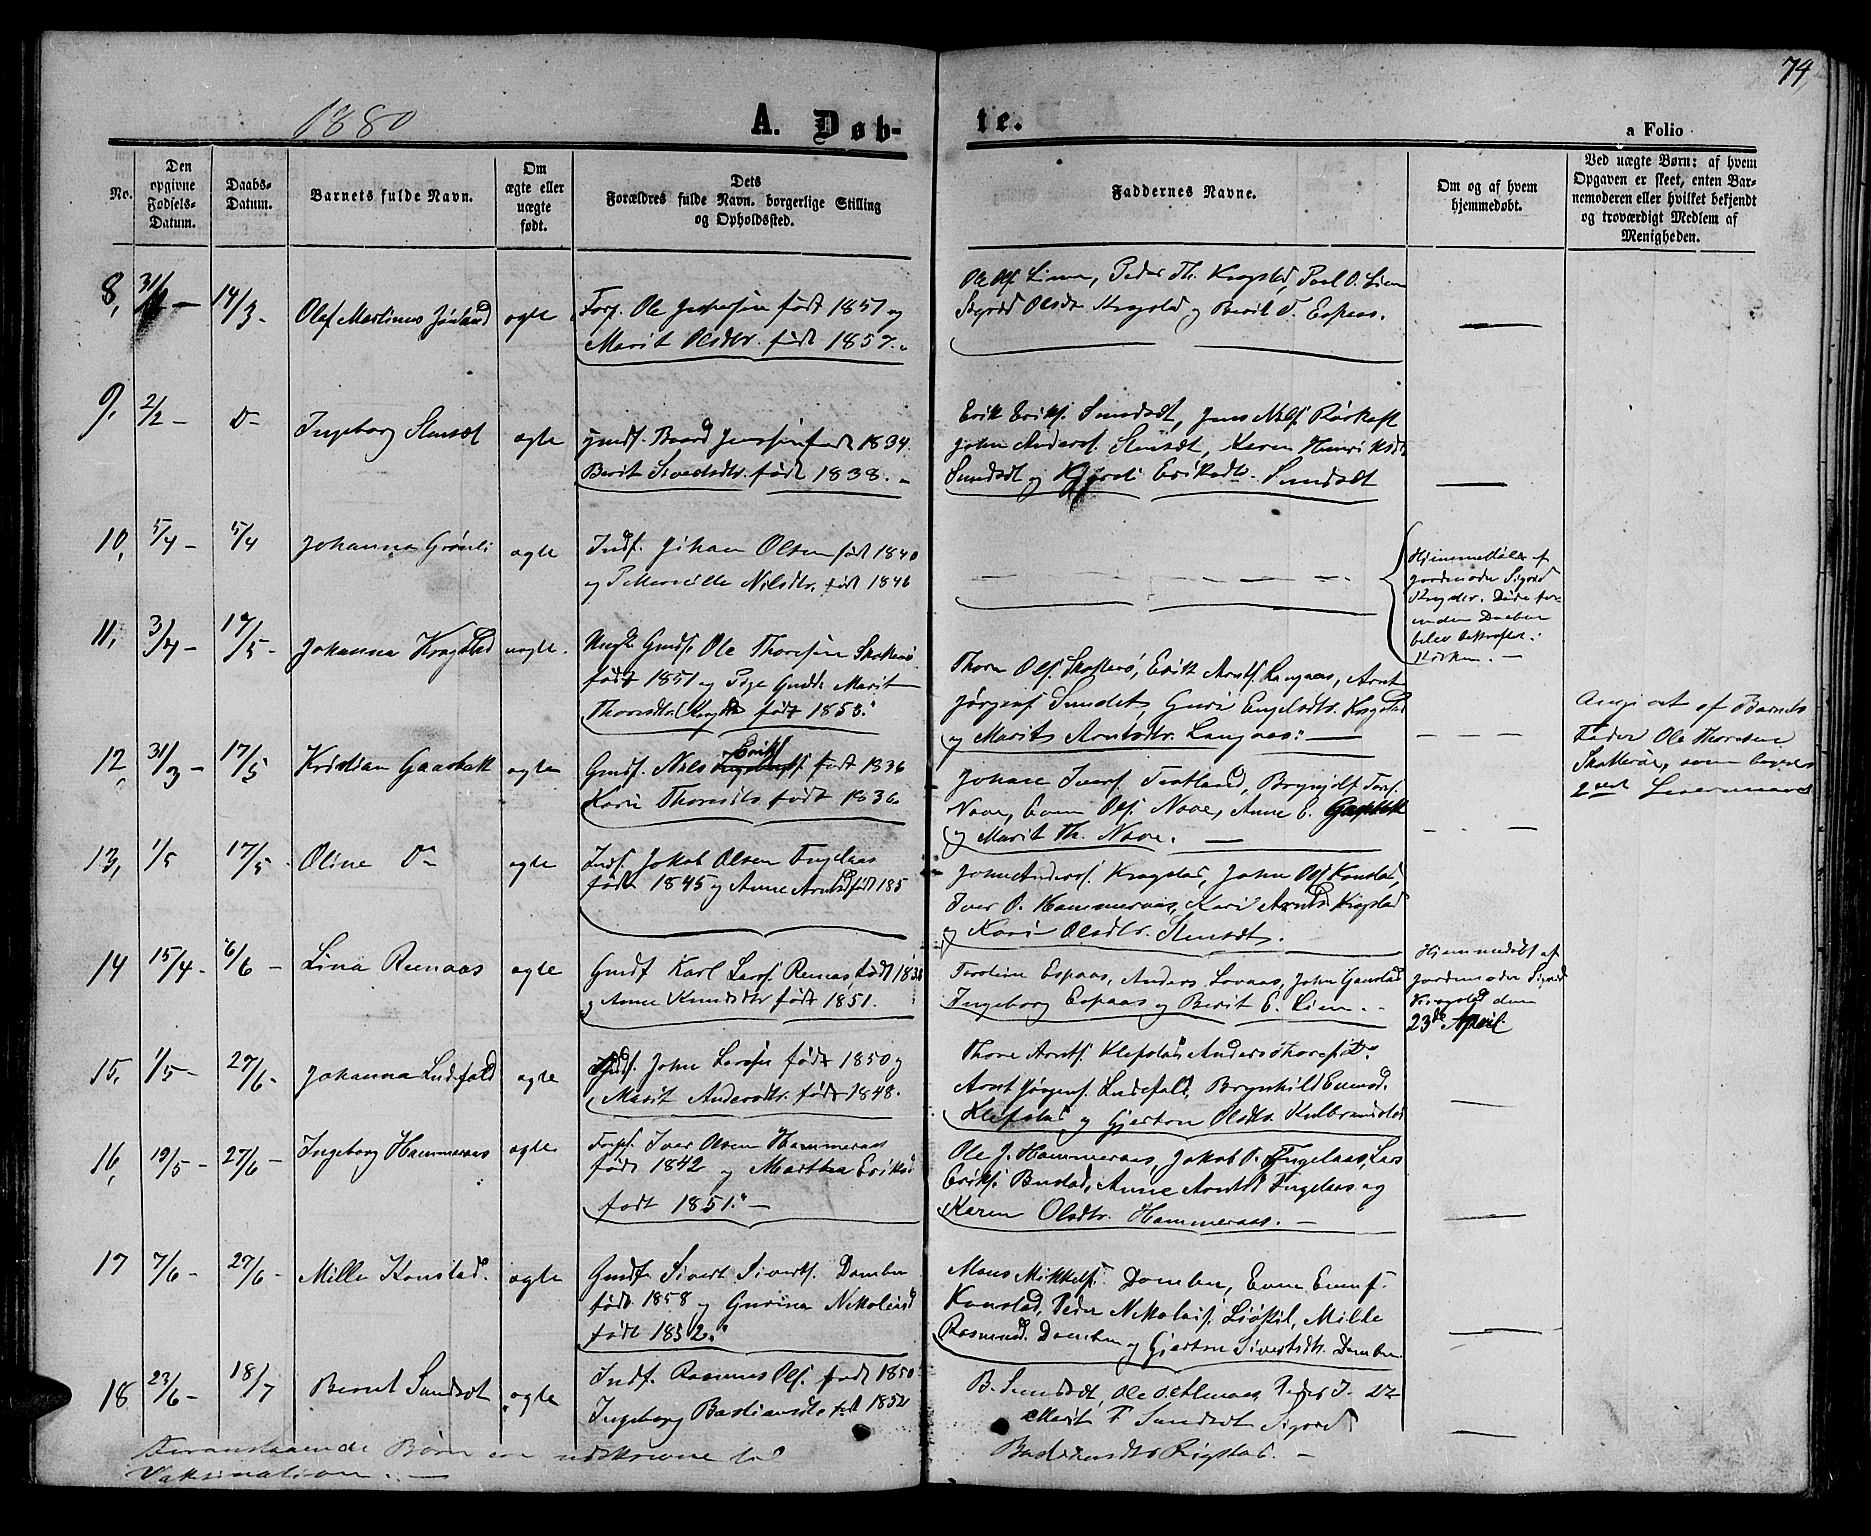 74
1880
A. Døb-
te.
a Folio
No.
Den opgivne Fødsels-Datum.
Daabs-Datum.
Barnets fulde Navn.
Om ægte eller uægte født.
Dets
Forældres fulde Navn, borgerlige Stilling
og Opholdssted.
Faddernes Navne.
Om og af hvem
hjemmedøbt.
Ved uægte Børn: af hvem
Opgaven er skeet, enten Bar-
nemoderen eller hvilket bekjendt
og troværdigt Medlem af
Menigheden.
8, 14/3 - Olef Martinus ægte
Ole født 1857 og
Marit Olsdtr. født 1857.
Ole Olsf. Lien, Peder Th. Krogstad, Poul O. Lien
Sigrid Olsdr. Krogstad og Berit T. Espaas.
9, 2/2 - D- Ingeborg Stensæt ægte
Baard Jenssen født 1834
Berit Sivertsdtr. født 1838.
Erik Eriks. Sundsæt, Jens Nils.
John Anders. Stensæt, Karen Henriksdt
Sundsæt og Eriksdtr. Sundsæt
10, 5/4 - 5/4 Johanna Grønli ægte
Indf. Johan Olsen født 1840
og Nilsdtr. født 1846
Hjemmedøbt af
jordmoder Sigrid
Krogstad. Døde for-
inden Daaben
blev bekræftet i
Kirken. -
11, 3/4 - 17/5 - Johanna Krogstad uægte.
Ungk. Gmdf. Ole Thoresen
født 1851 og Pige Marit
Thoresdtr. født 1853.
Thore Ols. Erik Arnts. Langaas, Arnt
Jørgens. Sundet, Guri Engelsdtr. Krogstad
og Marit Arntsdtr. Langaas. -
Angivet af Barnets
Fader Ole Thoresen
som begges
2det Leiermaal
12, 31/3 - 17/5 Kristian Gaasbak ægte
Gmdf. Nils Erik født 1836
Kari Thoresdtr født 1836
Johan Ivers. Brynjolf
Nove, Even Ols. Nove, Anne E. Gaasbakk
og Marit Th. Nove. -
13, 1/5 17/5 - Oline D- ægte
Indf. Jakob Olsen Fuglaas
født 1845 og Anne Arntsd født 185
John Anders. Krogstad, John Ols. Konstad,
Iver O. Hammeraas, Kari Arntsd. Krogstad
og Kari Olsdtr. Stensæt.
14 15/4 - 6/6 - Lina Renaas ægte
Gmdf Karl Lars. Renaas, født
og Anne Knudsdtr født 1851.
Espaas, Anders Lovaas, John
Ingeborg Espaas og Berit E. Lien. -
Hjemmedøbt af
jordmoder Sigrid
Krogstad den
23de April
15, 1/5 - 27/6 - Johanna Ludefald ægte
John Larsen født 1850 og
Marit Andersdtr. født 1848.
Thore Arnts. Klefstad, Anders Thores. D-
Arnt Jørgens. Ludefald, Brynhild Evensd.
Klefstad og Gjertru Olsdtr. Kulbrandstad
16, 19/5 - 27/6 - Ingeborg Hammeraas ægte
Forp. Iver Olsen Hammeraas
født 1842 og Martha Eriksd
født 1851. -
Ole J. Hammeraas, Jakob O. Fuglaas, Lars
Eriks. Bustad, Anne Arntsd Fuglaas og
Karen Olsdtr. Hammeraas. -
17 7/6 - 27/6 - Mille Konstad. ægte
Gmdf Sivert Siverts. Dombu
født 1858 og Gurina Nikolaisd
født 1852.
Mons Mikkels. Dombu, Even Evens.
Konstad, Peder Nikolais. Mille
Rasmusd. Dombu og Gjertru Sivertsdtr. Dombu
18 23/6 - 18/7 Bernt Sundsæt ægte
Indf. Rasmus Ols. født 1850
Ingeborg Bastiansdtr født 1852
B. Sundsæt, Ole Peder J.
Marit P Sundsæt Sigrid
Rigstad. -
Foranstaaende Børn ere udskrevne til
Vaksination. -